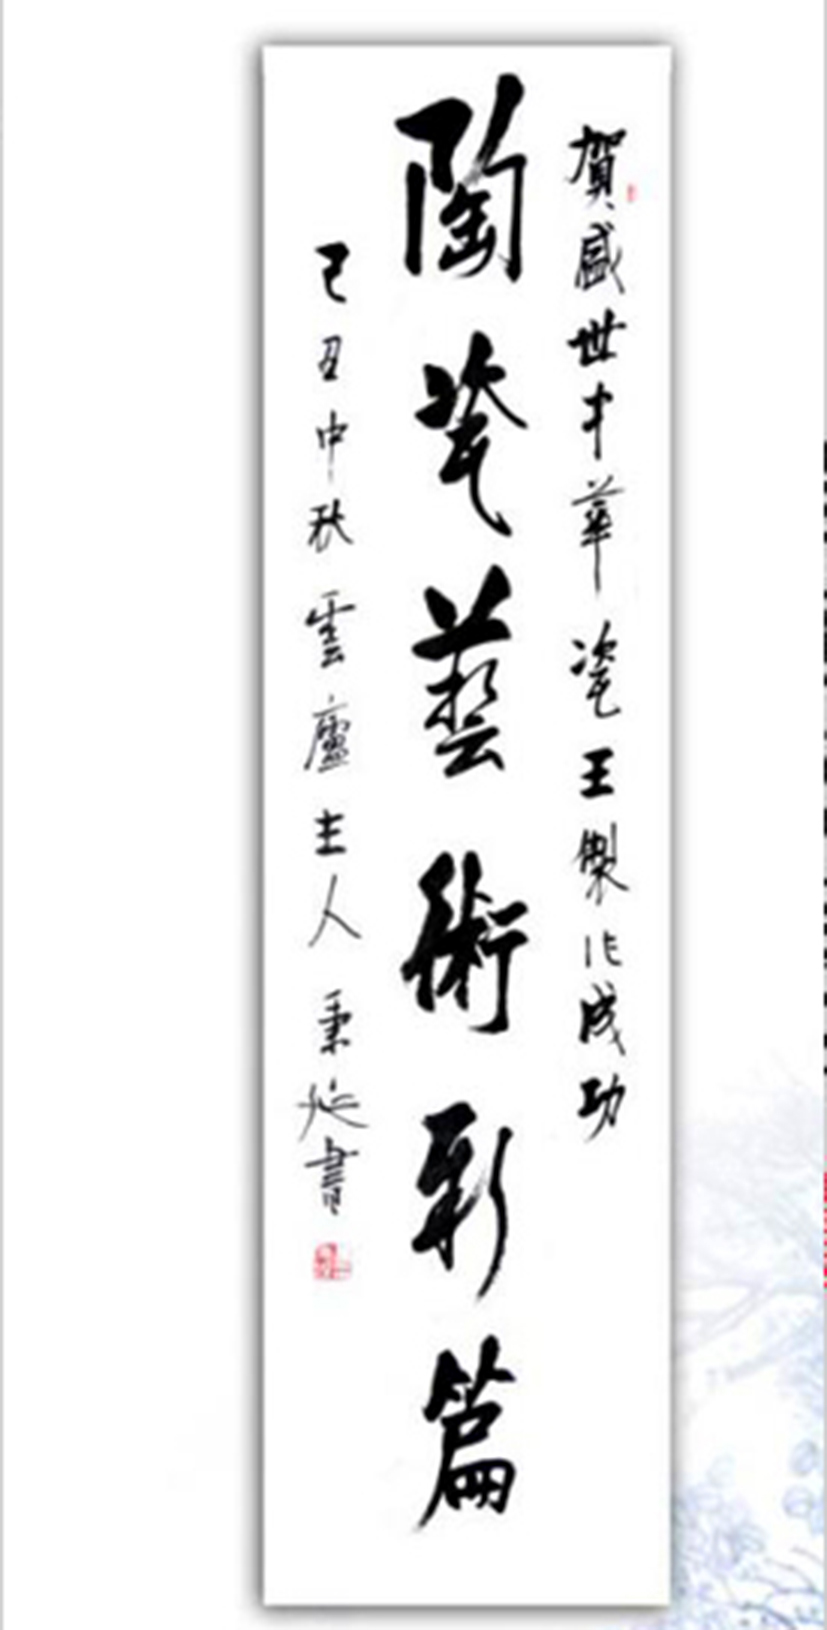 賀盛世中華瓷王製作成功
陶瓷藝術新篇
己丑中秋雲廬主人秉延書